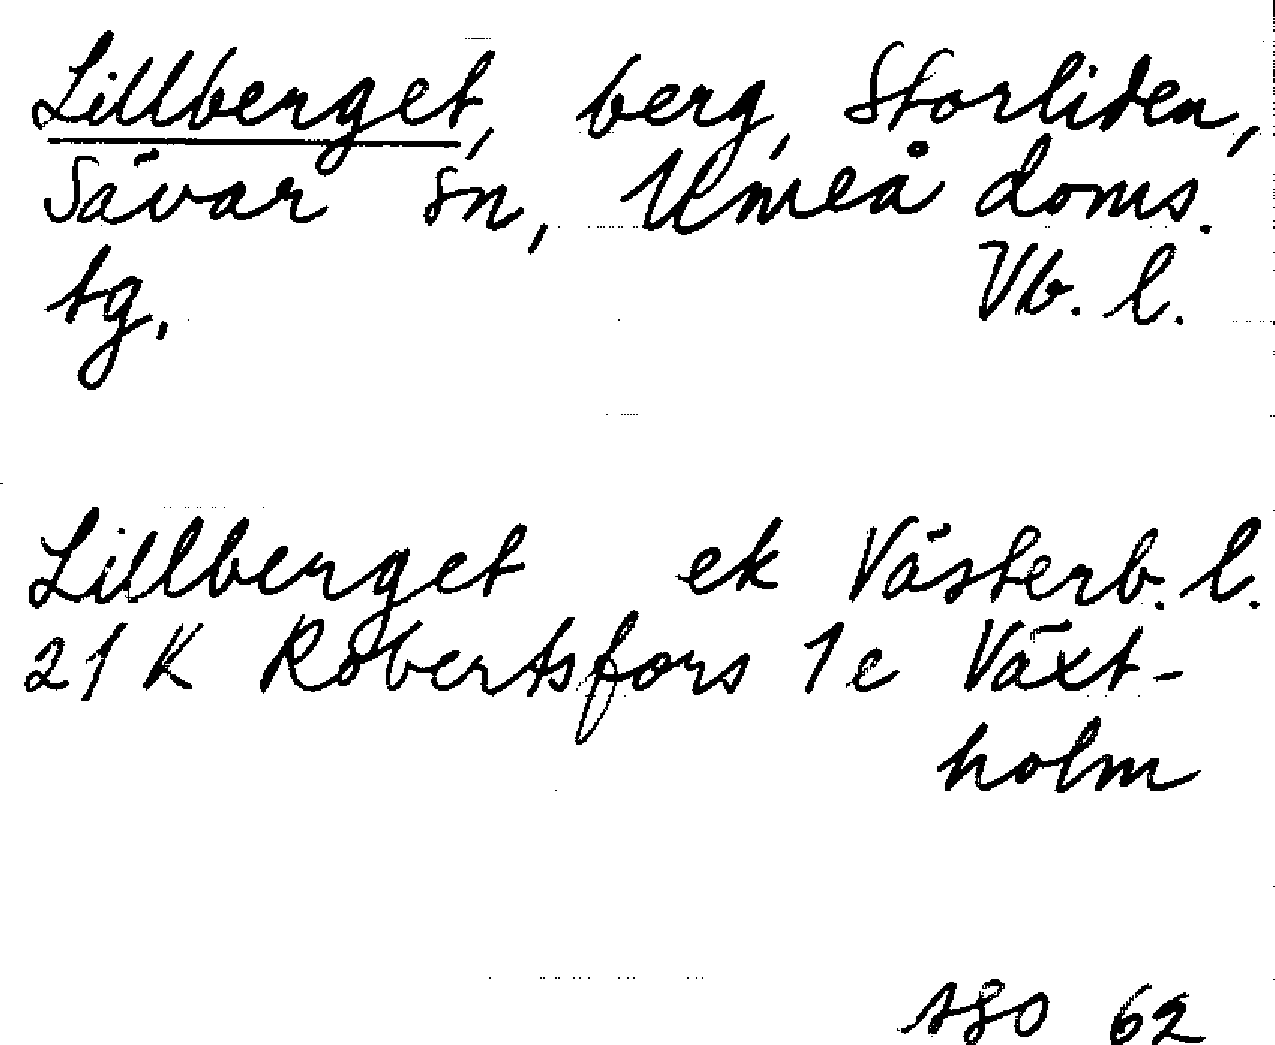 Lillberget, berg, Storliden,
Sävar sn, Umeå doms.
tg. Vb. l.
Lillberget ek Västerb. l.
21 K Robertsfors 1c Växt-
holm
62